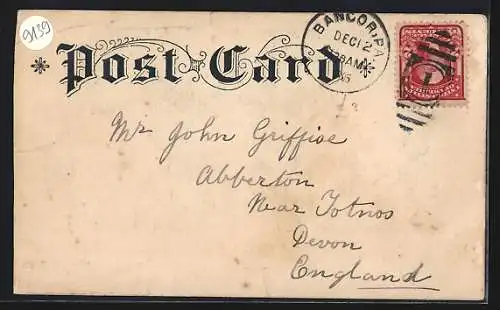 9139
Post Card
BANGOR, PA
DEC 12
8 AM
Mr John Griffice
Abberton
Near Totnos
Devon
England